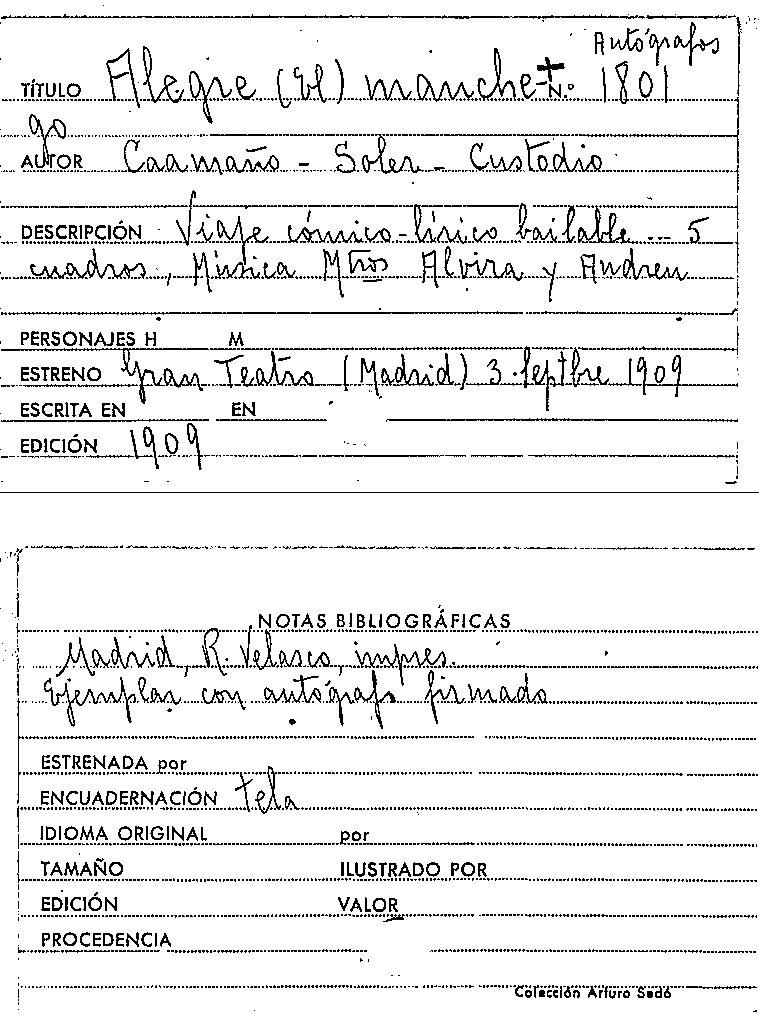 Autógrafos
TÍTULO Alegre (El) manche- N.º 1801
go
AUTOR Caamaño - Soler - Custodio
DESCRIPCIÓN Viaje cómico-lírico bailable ... 5
cuadros, Música Mtros Alvira y Andreu
PERSONAJES H M
ESTRENO Gran Teatro (Madrid) 3 Septbre 1909
ESCRITA EN EN
EDICIÓN 1909
NOTAS BIBLIOGRÁFICAS
Madrid, R. Velasco, impres.
Ejemplar con autógrafo firmado
ESTRENADA por
ENCUADERNACIÓN tela
IDIOMA ORIGINAL por
TAMAÑO ILUSTRADO POR
EDICIÓN VALOR
PROCEDENCIA
Colección Arturo Sedó